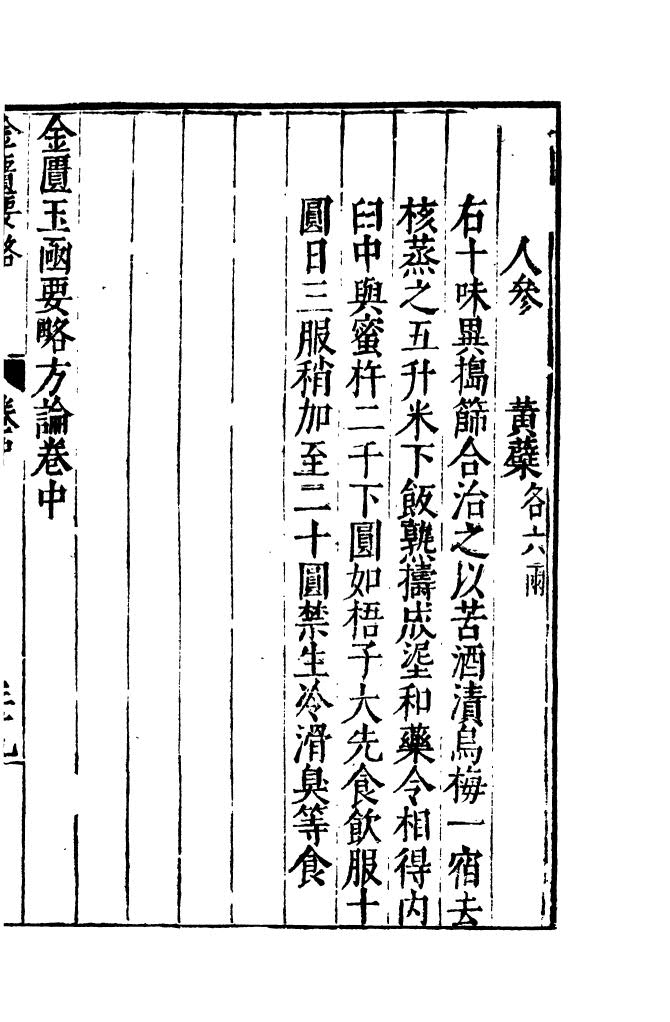 人參　黃蘗各六兩
右十味異搗篩合治之以苦酒漬烏梅一宿去
核蒸之五升米下飯熟擣成埿和藥令相得内
臼中與蜜杵二千下圓如梧子大先食飲服十
圓日三服稍加至二十圓禁生冷滑臭等食
金匱玉函要略方論卷中
金匱要略　卷中